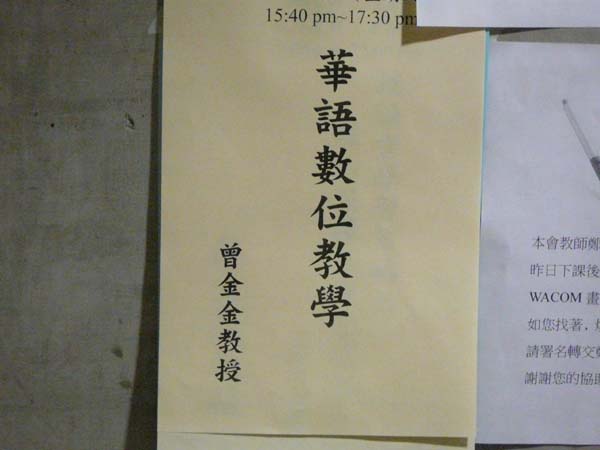 15:40 pm~17:30 pm
華語數位教學
曾金金教授
本會教師鄭
昨日下課後
WACOM 畫
如您找著，
請署名轉交
謝謝您的協助